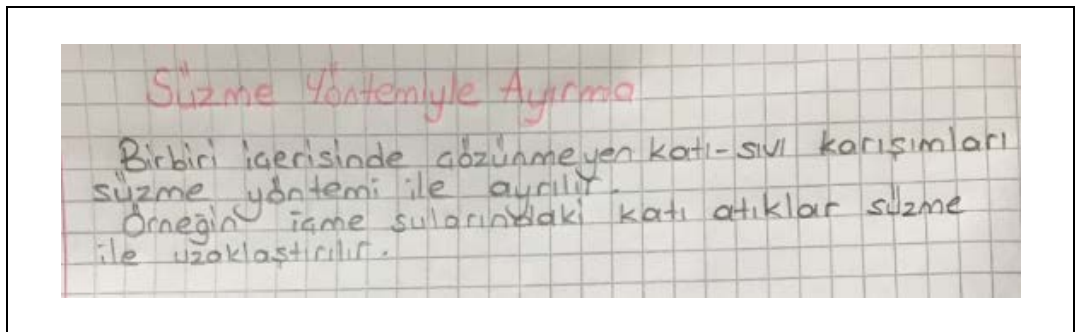 Süzme Yöntemiyle Ayırma
Birbiri içerisinde çözünmeyen katı-sıvı karışımları
süzme yöntemi ile ayrılır.
Örneğin içme sularındaki katı atıklar süzme
ile uzaklaştırılır.